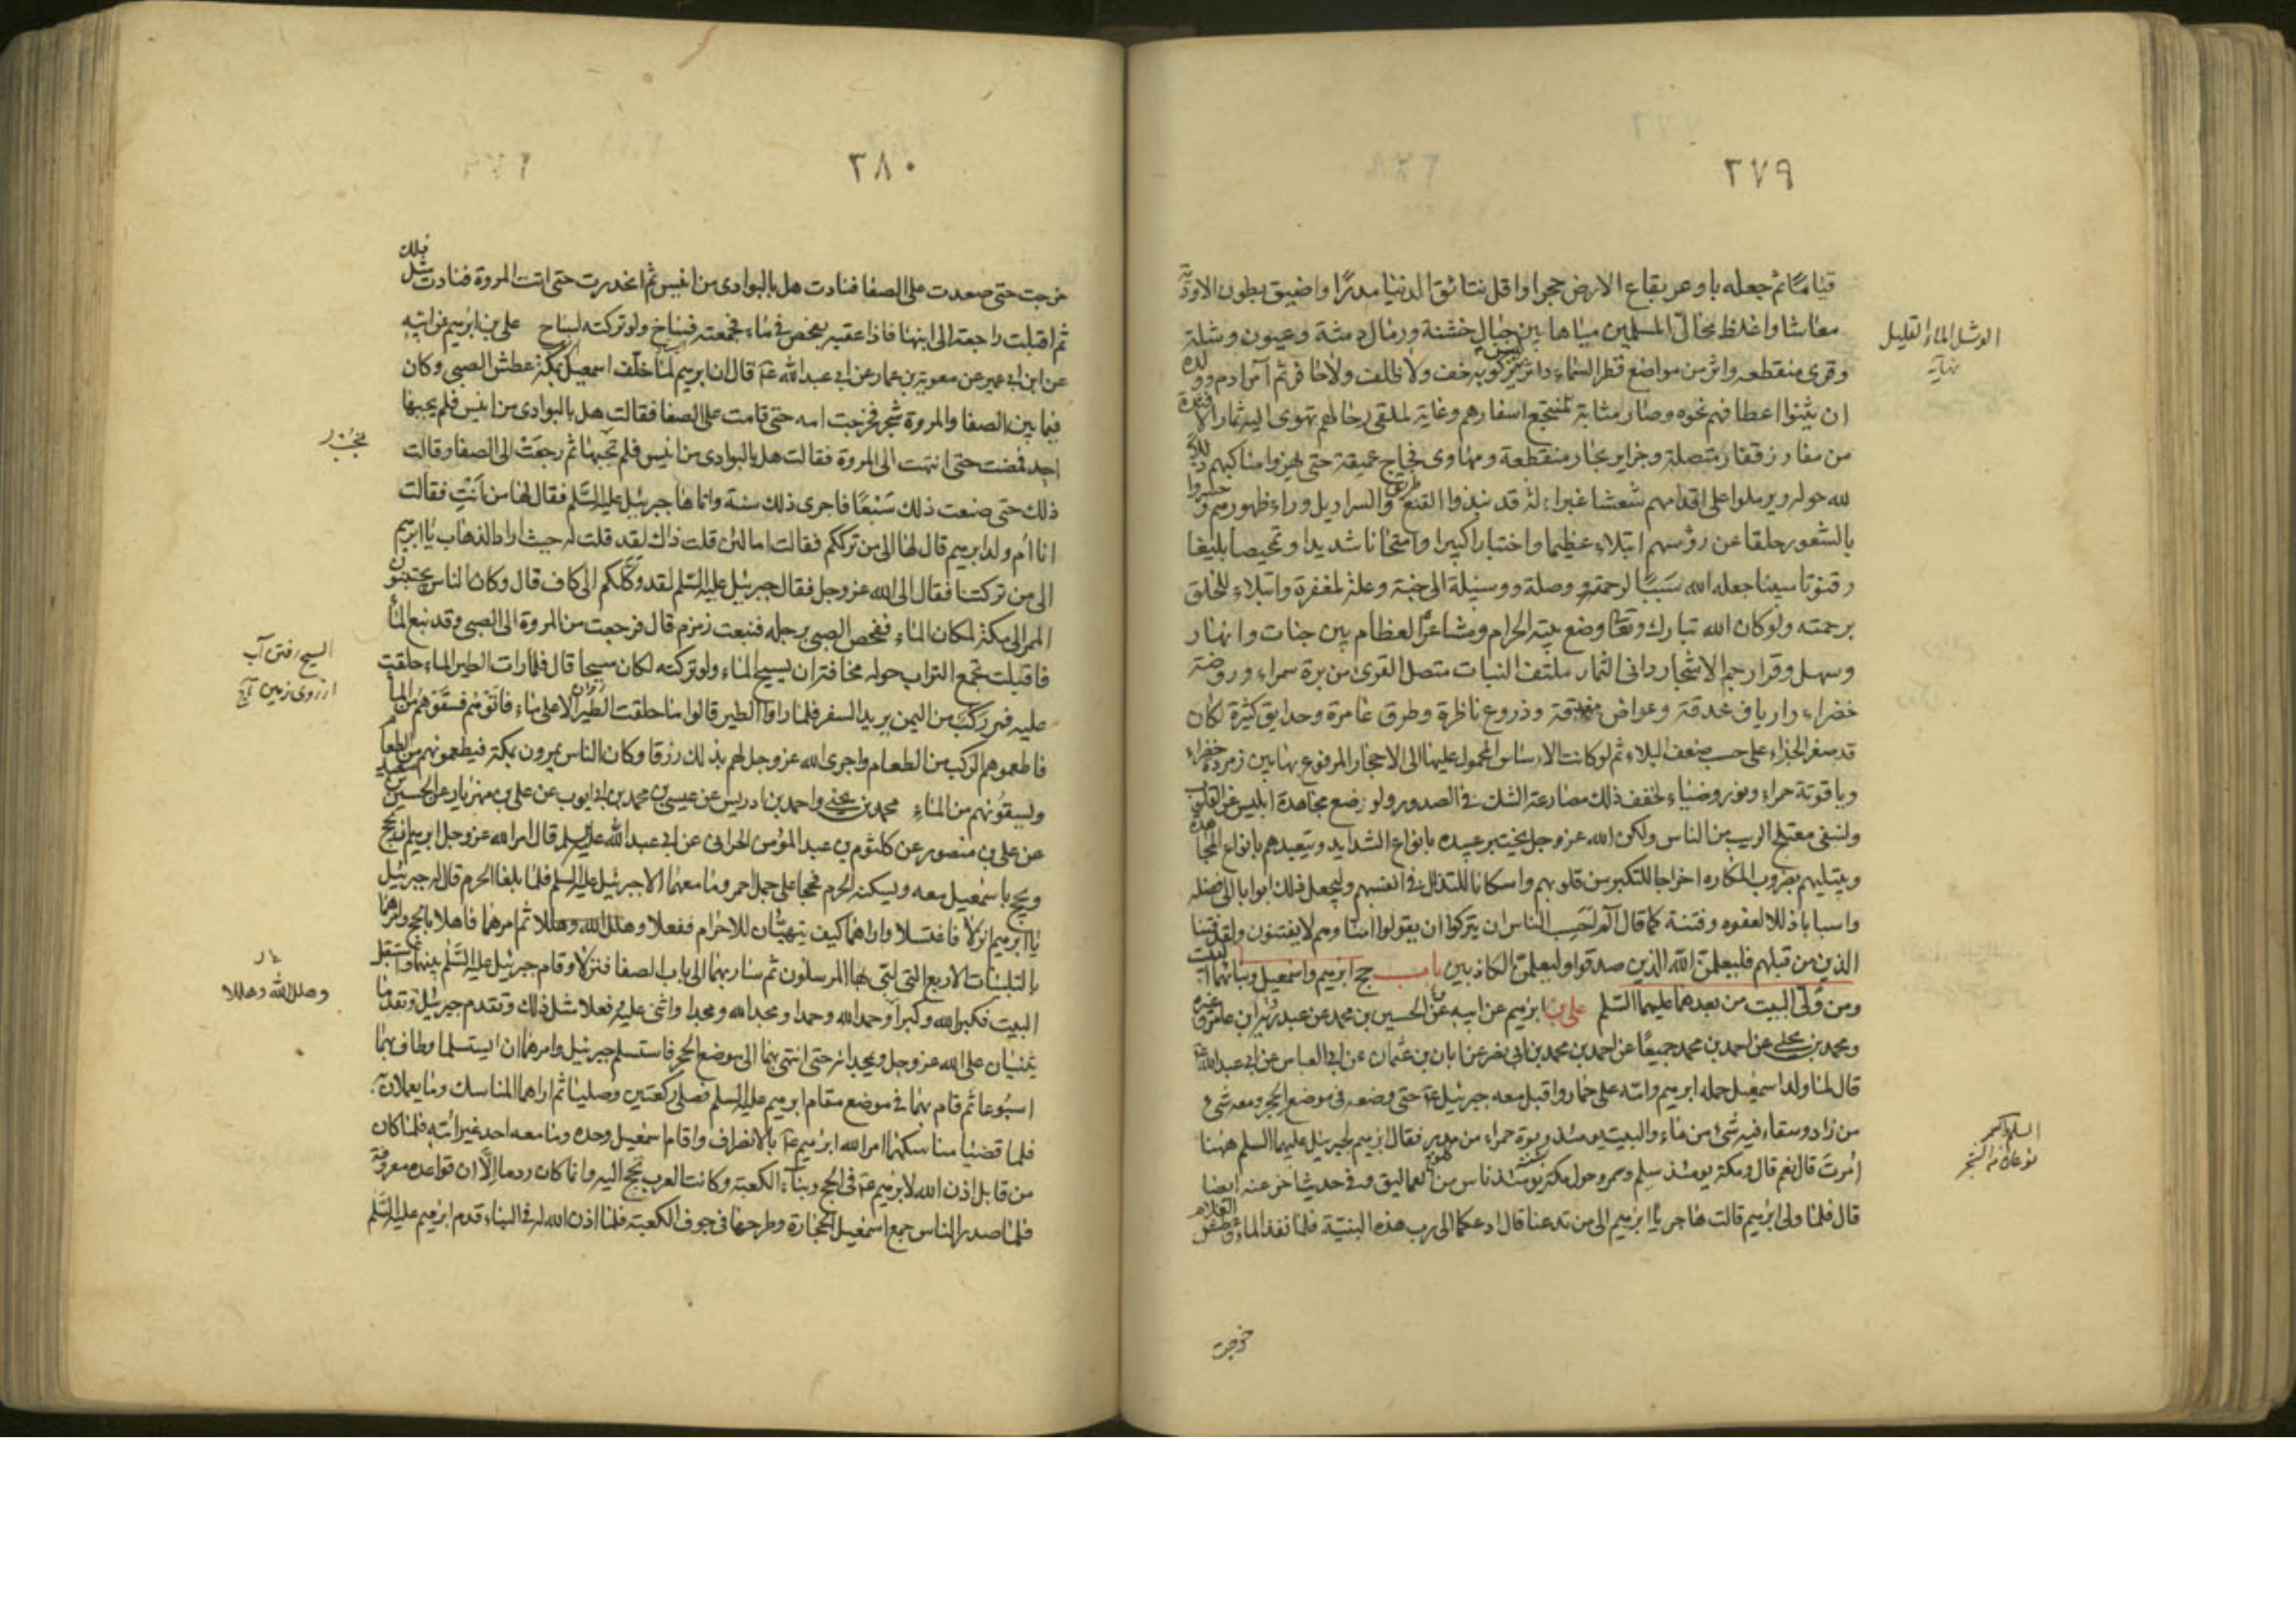 ٢٧٩
قياما ثم جعله باوعر بقاع الارض حجرا واقل نتائق الدنيا مدرا واضيق بطون الاودية
معاشا واغلظ محال المسلمين مياها بين جبال خشنة ورمال دمثة وعيون وشلة
وقرى منقطعة واثر من مواضع قطر السماء داثر ليس يزكو به خف ولا ظلف ولا حافر ثم امر ادم وولده
ان يثنوا اعطافهم نحوه وصار مثابة لمنتجع اسفارهم وغاية لملقى رحالهم تهوى اليه ثمار الافئدة
من مفاوز قفار متصلة وجزاير بحار منقطعة ومهاوى فجاج عميقة حتى يهزوا مناكبهم ذللا
لله حوله ويرملوا على اقدامهم شعثا غبراء له قد نبذوا القنع والسراويل وراء ظهورهم وحسروا
بالشعور حلقا عن رؤسهم ابتلاء عظيما واختبارا كبيرا وامتحانا شديدا وتمحيصا بليغا
وقنوتا مبينا جعله الله سببا لرحمته ووصلة ووسيلة الى جنته وعلة لمغفرته وابتلاء للخلق
برحمته ولو كان الله تبارك وتعالى وضع بيته الحرام ومشاعره العظام بين جنات وانهار
وسهل وقرار جم الاشجار دانى الثمار ملتف النبات متصل القرى من برة سمراء وروضة
خضراء وارياف محدقة وعراص مغدقة وزروع ناظرة وطرق عامرة وحدايق كثيرة لكان
قد صغر الجزاء على حسب ضعف البلاء ثم لو كانت الاساس المحمول عليها الى الاحجار المرفوع بها بين زمردة خضراء
وياقوتة حمراء ونور وضياء لخفف ذلك مصارعة الشك فى الصدور ولوضع مجاهدة ابليس عن القلوب
ولنفى معتلج الريب من الناس ولكن الله عز وجل يختبر عبيده بانواع الشدايد ويتعبدهم بانواع المجاهدة
ويبتليهم بضروب المكاره اخراجا للتكبر من قلوبهم واسكانا للتذلل فى انفسهم وليجعل ذلك ابوابا الى فضله
واسبابا ذللا لعفوه وفتنة كما قال الم احسب الناس ان يتركوا ان يقولوا امنا وهم لا يفتنون ولقد فتنا
الذين من قبلهم فليعلمن الله الذين صدقوا وليعلمن الكاذبين باب حج ابرهيم واسمعيل وبنائهما البيت
ومن ولى البيت من بعدهما عليهما السلم على بن ابرهيم عن ابيه عن الحسين بن محمد عن عبدويه بن عامر وغيره
ومحمد بن يحيى عن احمد بن محمد جميعا عن احمد بن محمد بن ابى نصر عن ابان بن عثمان عن ابى العباس عن ابى عبد الله
قال لما ولد اسمعيل حمله ابرهيم وامه على حمار واقبل معه جبرئيل حتى وضعه فى موضع الحجر ومعه شىء
من زاد وسقاء فيه شىء من ماء والبيت يومئذ ربوة حمراء من مدر فقال ابرهيم لجبرئيل عليهما السلم ههنا
امرت قال نعم قال ومكة يومئذ سلم وسمر وحول مكة يومئذ ناس من العماليق وفى حديث اخر عنه ايضا
قال فلما ولى ابرهيم قالت هاجر يا ابرهيم الى من تدعنا قال ادعكما الى رب هذه البنية فلما نفد الماء وعطش الغلام
خرجت
الوشل الماء القليل
نهاية
السلم والسمر
نوعان من الشجر
٣٨٠
خرجت حتى صعدت على الصفا فنادت هل بالبوادى من انيس ثم انحدرت حتى اتت المروة فنادت مثل ذلك
ثم اقبلت راجعة الى ابنها فاذا عقبه يفحص فى ماء فجمعته فساخ ولو تركته لساح على بن ابرهيم عن ابيه
عن ابن ابى عمير عن معوية بن عمار عن ابى عبد الله قال ان ابرهيم لما خلف اسمعيل بمكة عطش الصبى وكان
فيما بين الصفا والمروة شجر فخرجت امه حتى قامت على الصفا فقالت هل بالبوادى من انيس فلم يجبها
احد فمضت حتى انتهت الى المروة فقالت هل بالبوادى من انيس فلم تجبها ثم رجعت الى الصفا وقالت
ذلك حتى صنعت ذلك سبعا فاجرى ذلك سنة واتاها جبرئيل عليه السلم فقال لها من انت فقالت
انا ام ولد ابرهيم قال لها الى من ترككم فقالت اما لئن قلت ذاك لقد قلت له حيث اراد الذهاب يا ابرهيم
الى من تركتنا فقال الى الله عز وجل فقال جبرئيل عليه السلم لقد وكلكم الى كاف قال وكان الناس يجتنبون
الممر الى مكة لمكان الماء ففحص الصبى برجله فنبعت زمزم قال فرجعت من المروة الى الصبى وقد نبع الماء
فاقبلت تجمع التراب حوله مخافة ان يسيح الماء ولو تركته لكان سيحا قال فلما رات الطير الماء حلقت
عليه فمر ركب من اليمن يريد السفر فلما راوا الطير قالوا ما حلقت الطير الا على ماء فاتوهم فسقوهم من الماء
فاطعموهم الركب من الطعام واجرى الله عز وجل لهم بذلك رزقا وكان الناس يمرون بمكة فيطعمونهم من الطعام
ويسقونهم من الماء محمد بن يحيى واحمد بن ادريس عن عيسى بن محمد بن ابى ايوب عن على بن مهزيار عن الحسين بن سعيد
عن على بن منصور عن كلثوم بن عبد المؤمن الحرانى عن ابى عبد الله عليه السلم قال امر الله عز وجل ابرهيم ان يحج
ويحج باسمعيل معه ويسكنه الحرم فحجا على جمل احمر وما معهما الا جبرئيل عليه السلم فلما بلغا الحرم قال له جبرئيل
يا ابرهيم انزلا فاغتسلا واراهما كيف يتهيئان للاحرام ففعلا وهلل الله وهللا ثم امرهما فاهلا بالحج وامرهما
بالتلبيات الاربع التى لبى بها المرسلون ثم سار بهما الى باب الصفا فنزلا وقام جبرئيل عليه السلم بينهما فاستقبل
البيت فكبر الله وكبرا وحمد الله وحمدا ومجد الله ومجدا واثنى عليه ففعلا مثل ذلك وتقدم جبرئيل وتقدما
يثنيان على الله عز وجل ويمجدانه حتى انتهى بهما الى موضع الحجر فاستلم جبرئيل وامرهما ان يستلما وطاف بهما
اسبوعا ثم قام بهما فى موضع مقام ابرهيم عليه السلم فصلى ركعتين وصليا ثم اراهما المناسك وما يعملان به
فلما قضيا مناسكهما امر الله ابرهيم بالانصراف واقام اسمعيل وحده وما معه احد غير امه فلما كان
من قابل اذن الله لابرهيم فى الحج وبناء الكعبة وكانت العرب تحج اليه وانما كان ردما الا ان قواعده معروفة
فلما صدر الناس جمع اسمعيل الحجارة وطرحها فى جوف الكعبة فلما اذن الله له فى البناء قدم ابرهيم عليه السلم
السيح رفتن آب
از روى زمين
وهلل الله وهللا